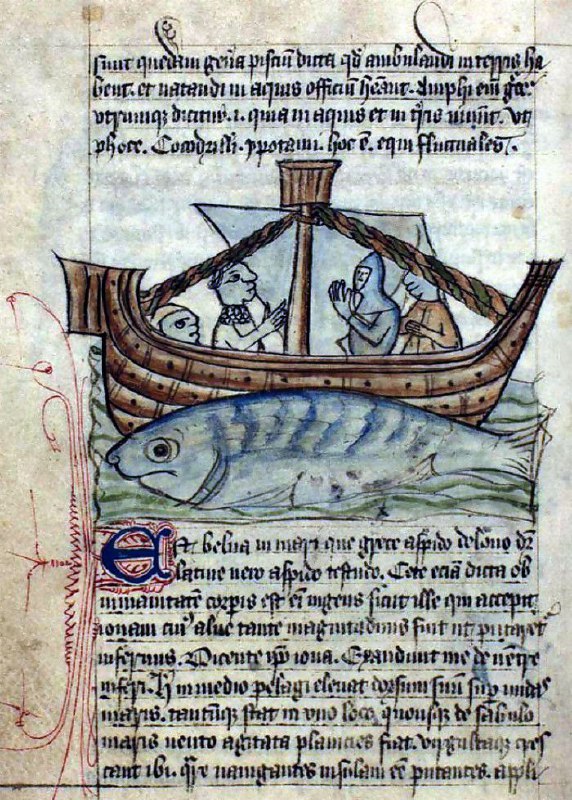 sunt quedam gen̄a pisciū dicta qd̓ ambulandi in terris ha
bent. et natandi in aquis officiū he̅ant. Amphi em̅ gre̅
vtrumqꝫ dicitur .i. quia in aquis et in tr̅is viuūt. Vt
phoce. Cocodrilli. ypotami. hoc ē. equi fluctuales.
Est belua in mari que grece aspido delono dr̅
latine vero aspido testudo. Cete eciā dicta ob
inmanitatē corpis est em̅ ingens sicut ille qui accepit
ionam cuiꝰ aluꝰ tante magnitudinis fuit ut putaret̉
infernus. Dicente ip̅o iona. Exaudiuit me de uentre
inferi. H̅ in medio pelagi eleuat dorsum suū sup̅ undas
maris. tantūqꝫ stat in vno loco quousqꝫ de sabulo
maris uento agitata planicies fiat. virgultaqꝫ cres
cant ibi. qr̅e nauigantes insulam ee̅ putantes. appli